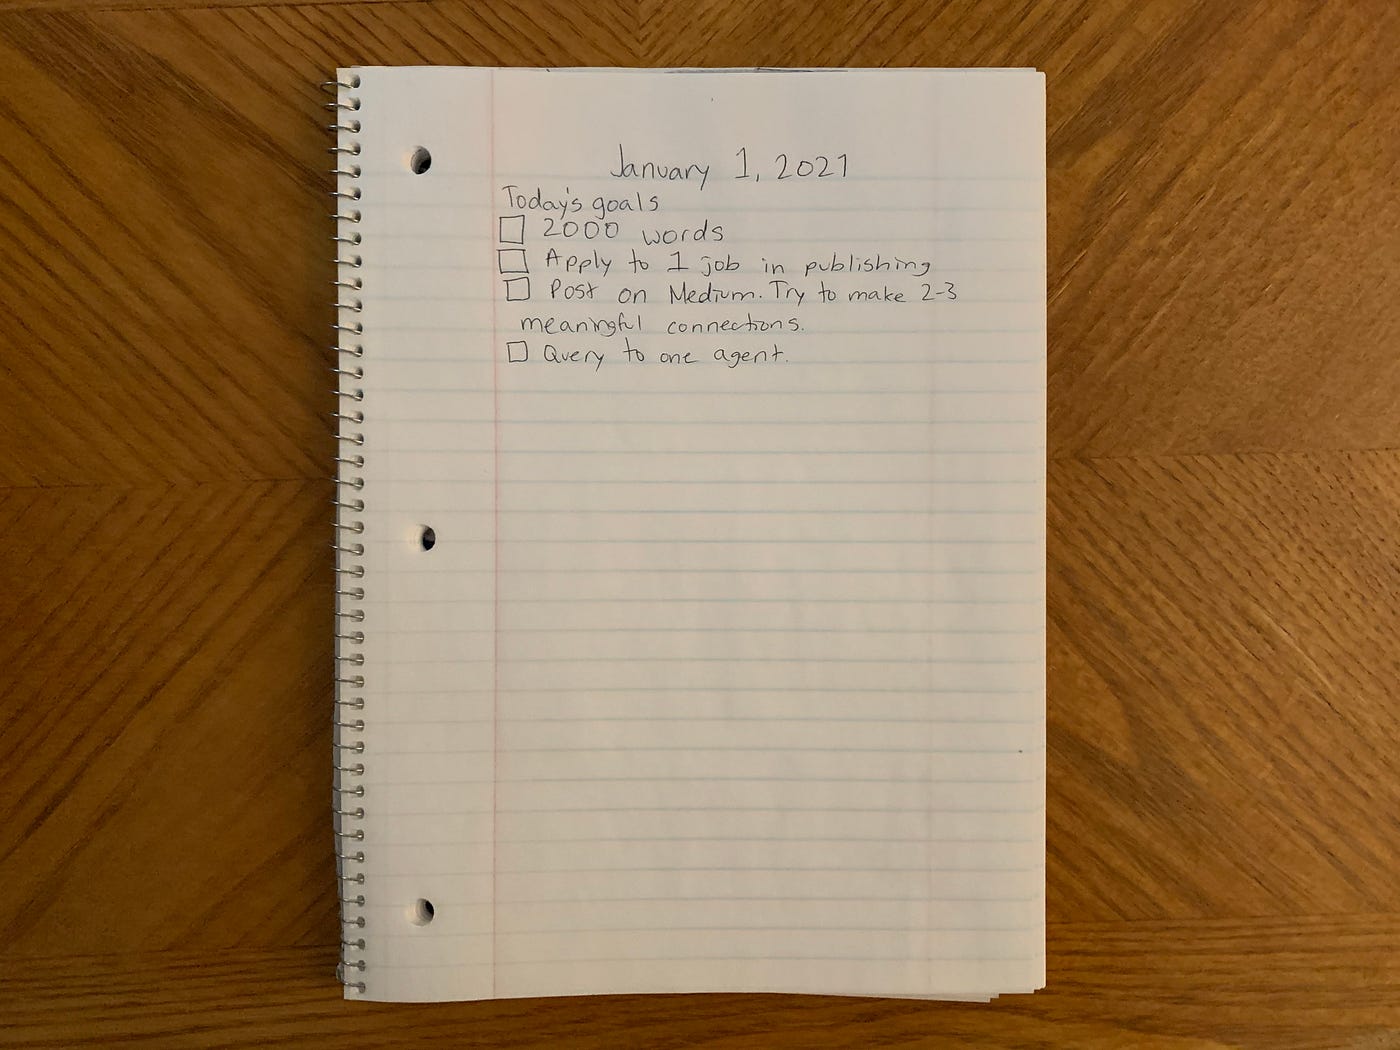 January 1, 2021
Today's goals
☐ 2000 words
☐ Apply to 1 job in publishing
☐ Post on Medium. Try to make 2-3
meaningful connections.
☐ Query to one agent.